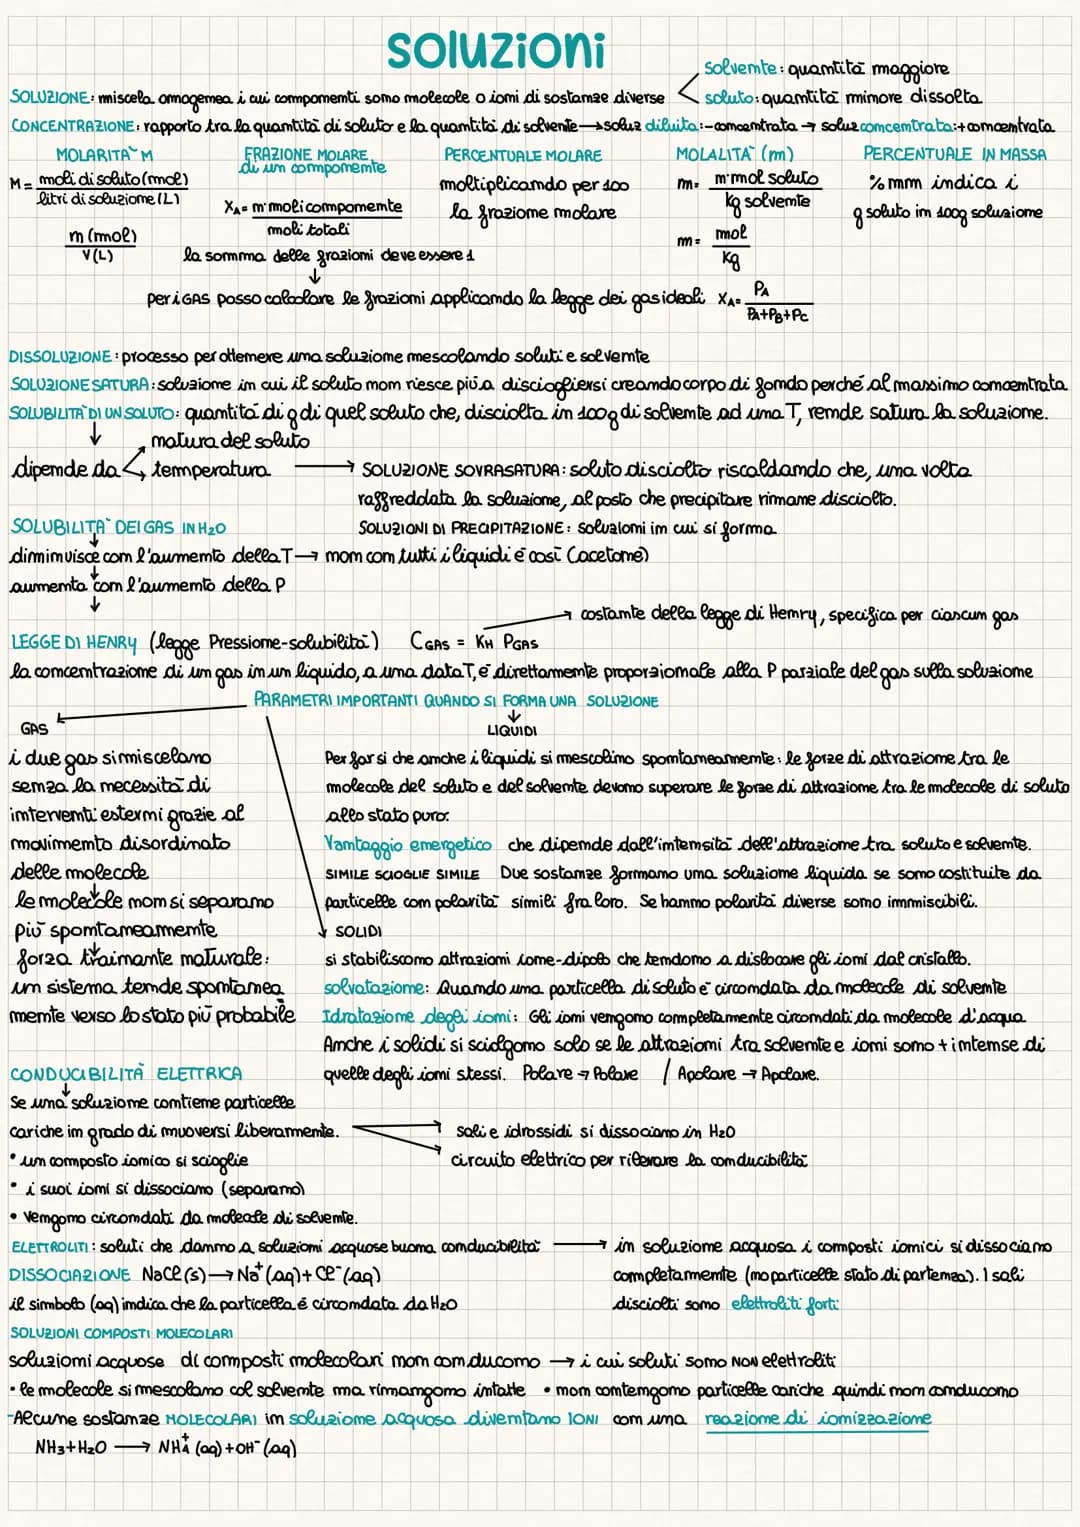 soluzioni
solvente: quantità maggiore
SOLUZIONE: miscela omogenea i cui componenti sono molecole o ioni di sostanze diverse
soluto: quantità minore dissolta
CONCENTRAZIONE: rapporto tra la quantità di soluto e la quantità di solvente → soluz diluita: - concentrata → soluz concentrata: + concentrata
MOLARITÀ M
M = moli di soluto (mol) / litri di soluzione (L)
n (mol) / V (L)
FRAZIONE MOLARE di un componente
XA = n° moli componente / moli totali
la somma delle frazioni deve essere 1
↓
per i GAS posso calcolare le frazioni applicando la legge dei gas ideali XA = PA / PA+PB+PC
PERCENTUALE MOLARE
moltiplicando per 100
la frazione molare
MOLALITÀ (m)
m = n° mol soluto / kg solvente
m = mol / kg
PERCENTUALE IN MASSA
% mm indica i
g soluto in 100g soluzione
DISSOLUZIONE: processo per ottenere una soluzione mescolando soluti e solvente
SOLUZIONE SATURA: soluzione in cui il soluto non riesce più a disciogliersi creando corpo di fondo perché al massimo concentrata
SOLUBILITÀ DI UN SOLUTO: quantità di g di quel soluto che, disciolta in 100g di solvente ad una T, rende satura la soluzione.
↓
dipende da
natura del soluto
temperatura → SOLUZIONE SOVRASATURA: soluto disciolto riscaldando che, una volta
raffreddata la soluzione, al posto che precipitare rimane disciolto.
SOLUZIONI DI PRECIPITAZIONE: soluzioni in cui si forma
SOLUBILITÀ DEI GAS IN H2O
↓
diminuisce con l'aumento della T → non con tutti i liquidi è così (acetone)
↓
aumenta con l'aumento della P
↓
LEGGE DI HENRY (legge Pressione-solubilità) CGAS = KH PGAS
→ costante della legge di Henry, specifica per ciascun gas
la concentrazione di un gas in un liquido, a una data T, è direttamente proporzionale alla P parziale del gas sulla soluzione
PARAMETRI IMPORTANTI QUANDO SI FORMA UNA SOLUZIONE
GAS
i due gas si miscelano
senza la necessità di
interventi esterni grazie al
movimento disordinato
delle molecole
↓
le molecole non si separano
più spontaneamente
↓
forza trainante naturale:
un sistema tende spontanea
mente verso lo stato più probabile
LIQUIDI
Per far si che anche i liquidi si mescolino spontaneamente: le forze di attrazione tra le
molecole del soluto e del solvente devono superare le forze di attrazione tra le molecole di soluto
allo stato puro.
Vantaggio energetico che dipende dall'intensità dell'attrazione tra soluto e solvente.
SIMILE SCIOGLIE SIMILE Due sostanze formano una soluzione liquida se sono costituite da
particelle con polarità simili fra loro. Se hanno polarità diverse sono immiscibili.
SOLIDI
si stabiliscono attrazioni ione-dipolo che tendono a dislocare gli ioni dal cristallo.
solvatazione: Quando una particella di soluto è circondata da molecole di solvente
Idratazione degli ioni: Gli ioni vengono completamente circondati da molecole d'acqua
Anche i solidi si sciolgono solo se le attrazioni tra solvente e ioni sono + intense di
quelle degli ioni stessi. Polare → Polare / Apolare → Apolare.
CONDUCIBILITÀ ELETTRICA
↓
Se una soluzione contiene particelle
cariche in grado di muoversi liberamente.
→ sali e idrossidi si dissociano in H2O
→ circuito elettrico per rilevare la conducibilità
• un composto ionico si scioglie
• i suoi ioni si dissociano (separano)
• vengono circondati da molecole di solvente.
ELETTROLITI: soluti che danno a soluzioni acquose buona conducibilità → in soluzione acquosa i composti ionici si dissociano
completamente (no particelle stato di partenza). I sali
disciolti sono elettroliti forti
DISSOCIAZIONE NaCl (s) → Na+ (aq) + Cl- (aq)
il simbolo (aq) indica che la particella è circondata da H2O
SOLUZIONI COMPOSTI MOLECOLARI
soluzioni acquose di composti molecolari non conducono → i cui soluti sono NON elettroliti
• le molecole si mescolano col solvente ma rimangono intatte • non contengono particelle cariche quindi non conducono
-Alcune sostanze MOLECOLARI in soluzione acquosa diventano IONI con una reazione di ionizzazione
NH3 + H2O → NH4+ (aq) + OH- (aq)